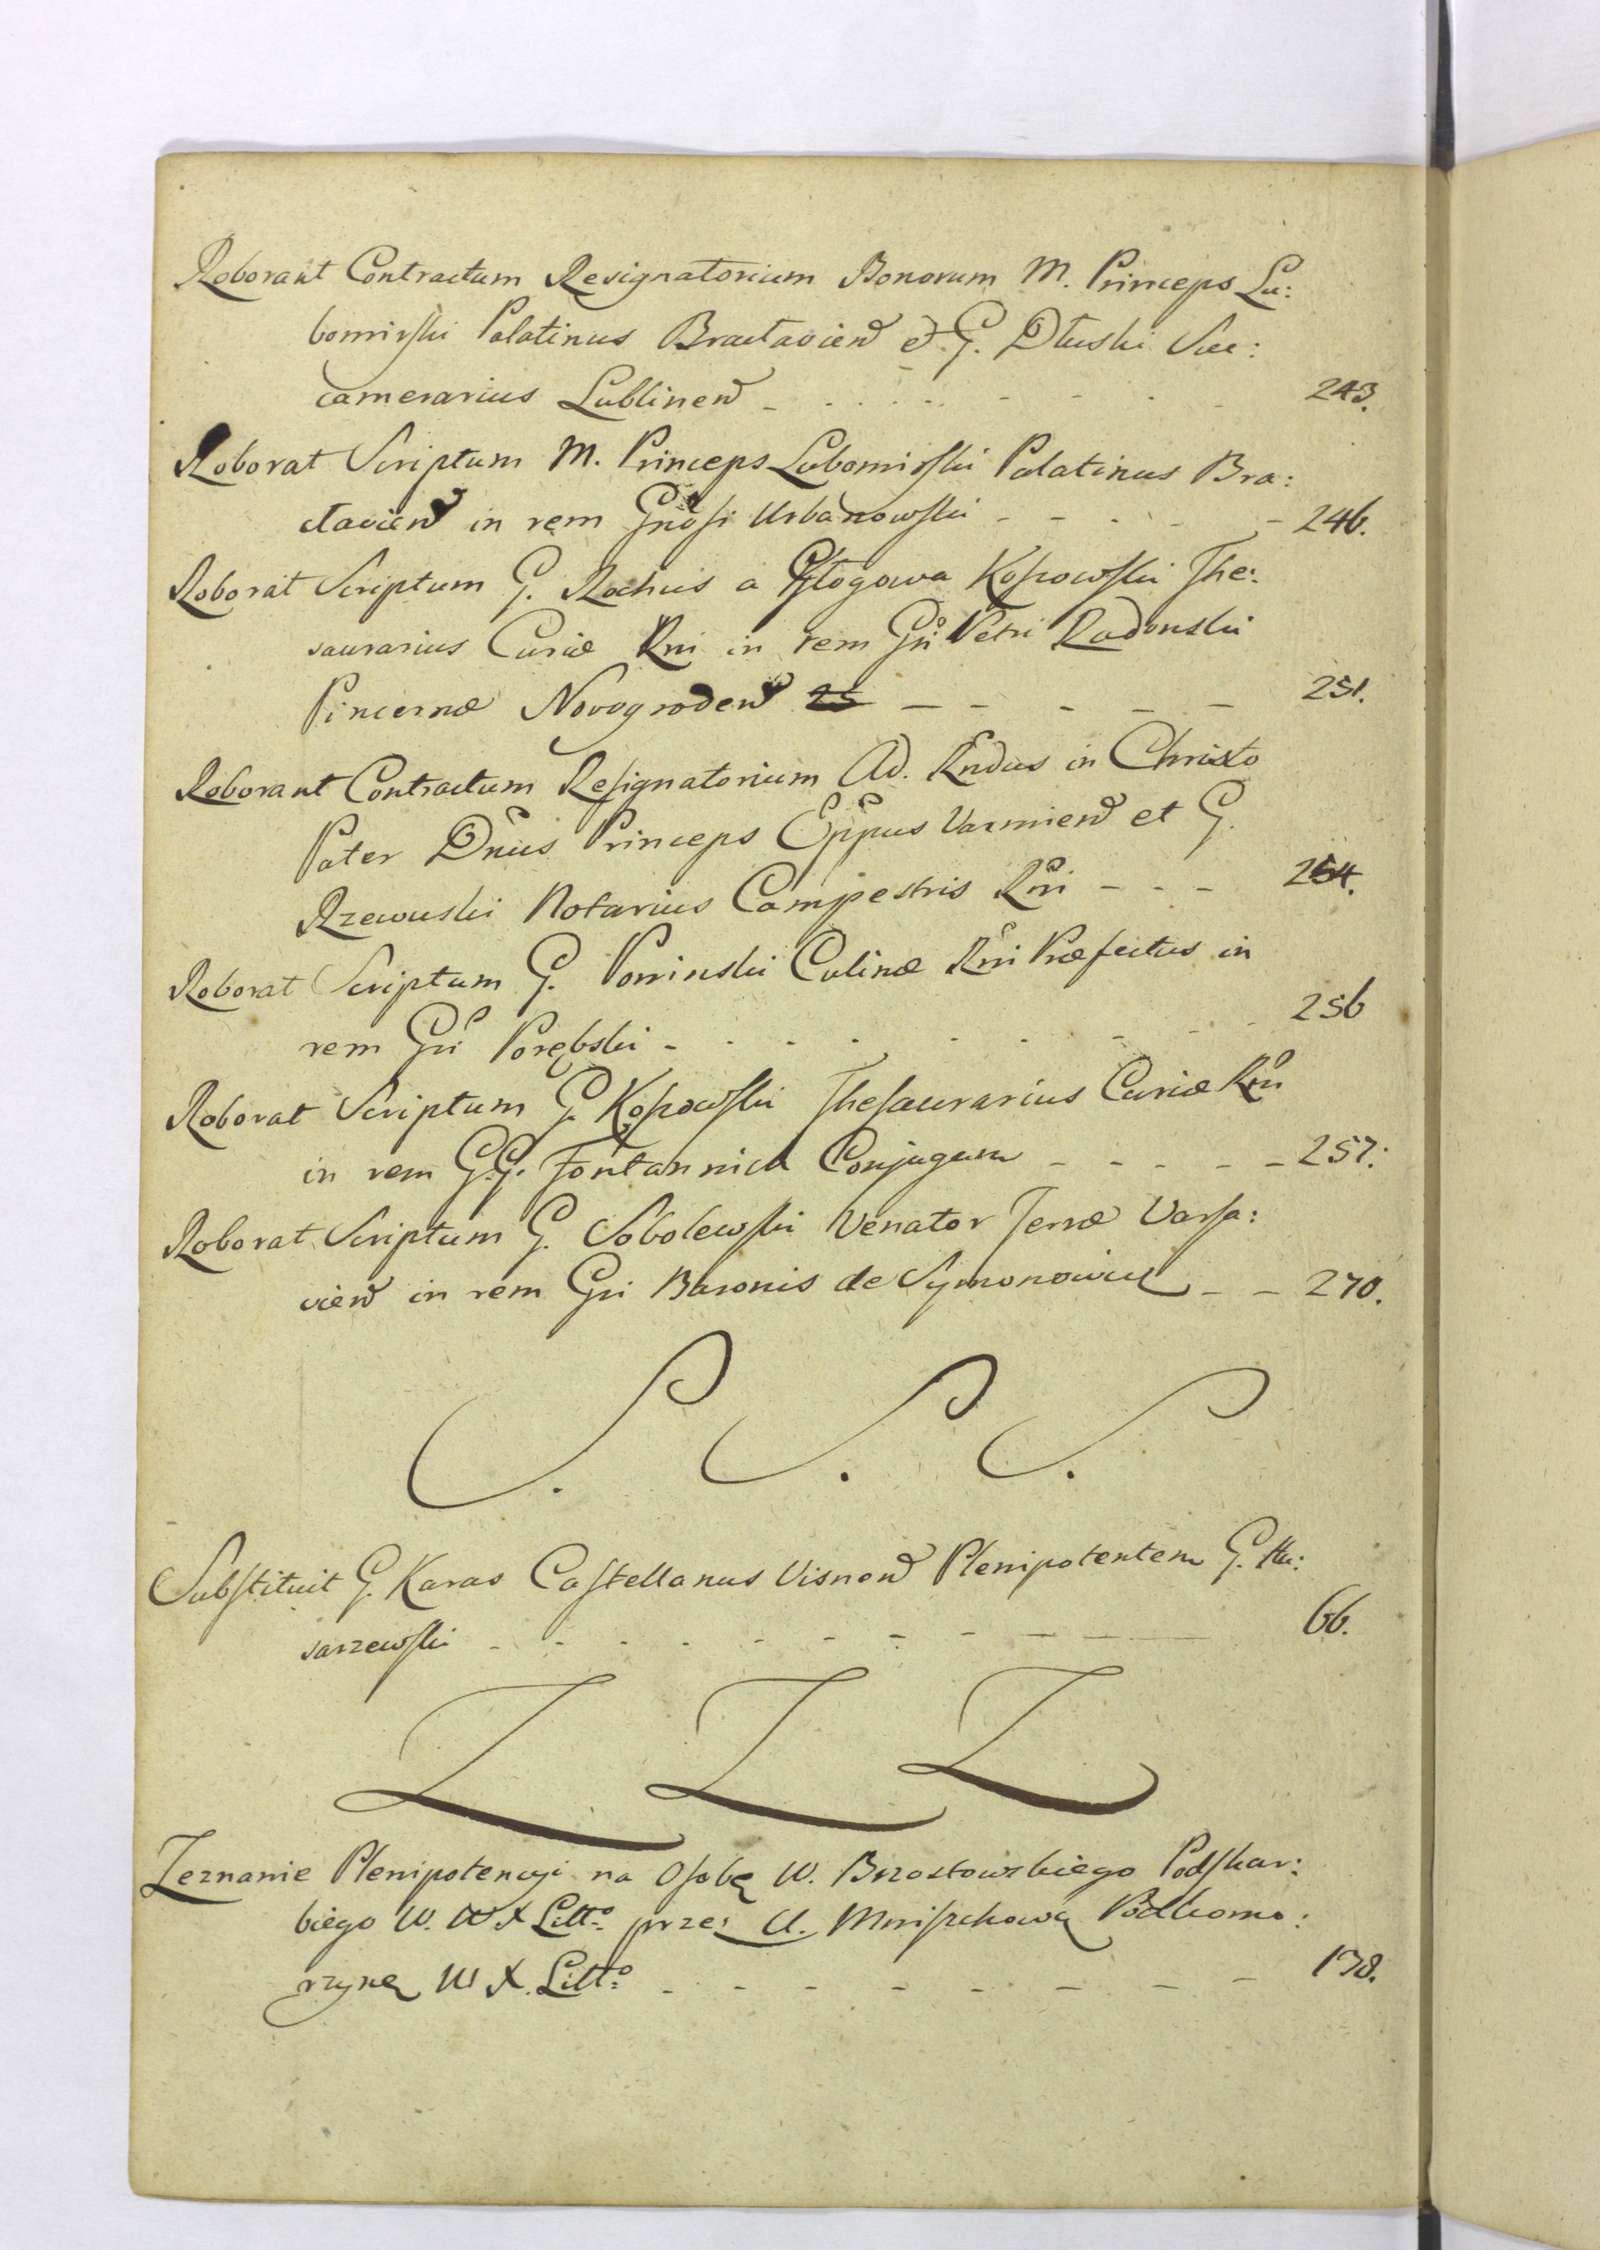 Roborant Contractum Resignatorium Bonorum M. Princeps Lu:
bomirski Palatinus Bractavien et G. Dłuski Suc:
camerarius Lublinen - - - - - - - 243.
Roborat Scriptum M. Princeps Lubomirski Palatinus Bra:
ctavien in rem Gnosi Urbanowski - - - - - 246.
Roborat Scriptum G. Rochus a Głogowa Kossowski The:
saurarius Curiæ Rni in rem Gni Petri Radonski
Pincernæ Novogroden 25 - - - - - 251.
Roborant Contractum Resignatorium Ad. Rndus in Christo
Pater Dnus Princeps Eppus Varmien et G.
Rzewuski Notarius Campestris Rni - - - 254.
Roborat Scriptum G. Poninski Culinæ Rni Præfectus in
rem Gni Porębski - - - - - - - 256
Roborat Scriptum G. Kossowski Thesaurarius Curiæ Rni
in rem G.G. Fontannich Conjugum - - - - - 257.
Roborat Scriptum G. Sobolewski Venator Terræ Varsa:
vien in rem Gni Baronis de Symonowicz - - 270.
S. S. S.
Substituit G. Karas Castellanus Visnen Plenipotentem G. Hu:
sarzewski - - - - - - - - - 66.
Z Z Z
Zeznanie Plenipotencyi na Osobę W. Brzostowskiego Podskar:
biego W. W X Litto przez U. Mniszchową Podkomo:
rzynę W X. Litto - - - - - - - - 178.